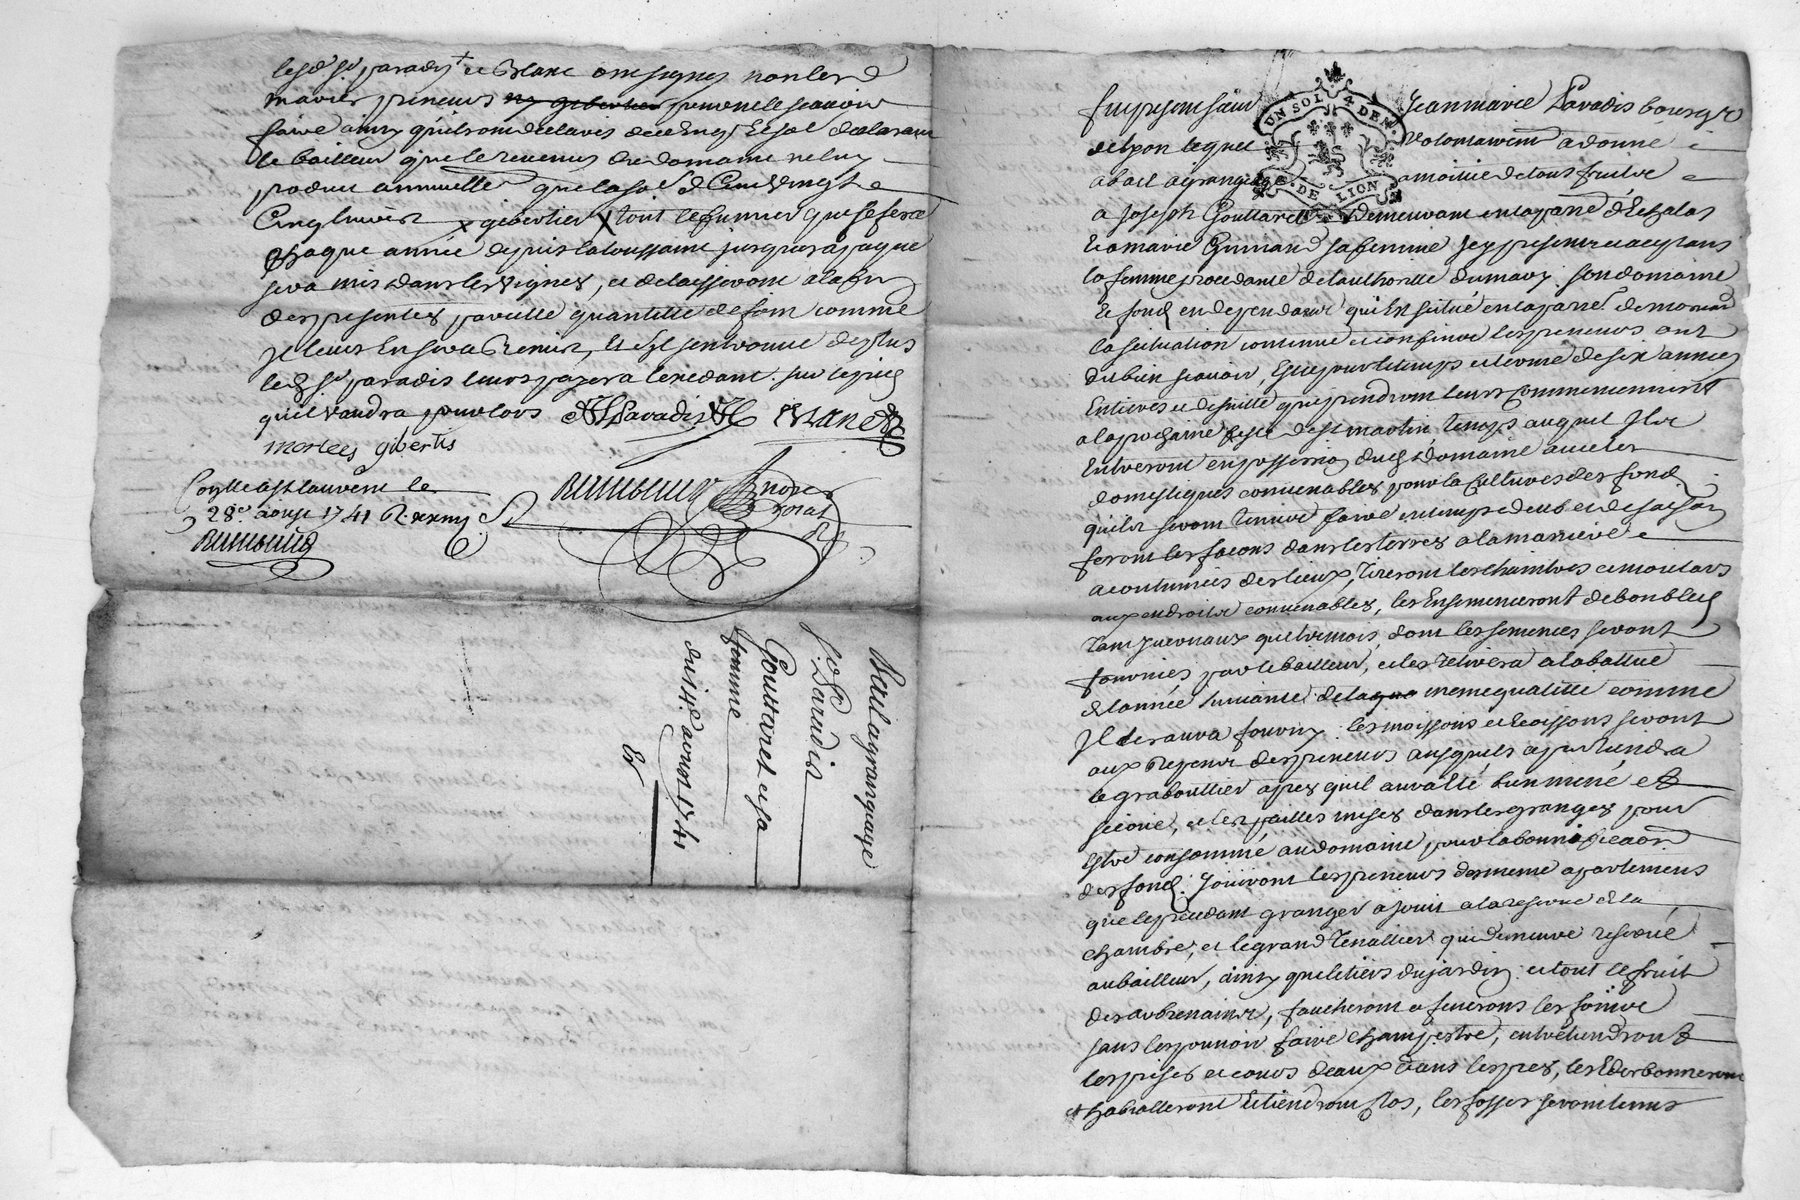 led. sr. paradis et Blanc ont signés non led.
mariés preneurs pour ne le scavoir
faire ainsy qu'ils ont declarés de ce Enquis
le bailleur que le revenus du domaine ne luy
produit annuellement que la so. de Cent vingt
Cinq livres x gibertier x tout le fumier qui se fera
chaque année depuis la toussaint jusques a paque
sera mis dans les vignes, et delaisseront a la fin
des presentes pareille quantitté de foin comme
Il leur En sera Remis, Et s'il s'en trouve de plus
led. sr. paradis leurs payera l'exedant sur le pied
qu'il vaudra pour lors JM Paradis Blanc
morles gibertis
Conlle a st laurent le
28e. aoust 1741 R.
UN SOL 4 DEN.
G. DE LION
Jean marie Paradis bourgs.
de Lyon lequel volontairemt. a donné
a bail a grangeage a moitié de tous fruits
a Joseph Gouttaret demeurant en la parre. d'Echalas
Et a marie Guinand sa femme Icy presents et aceptans
la femme procedante de l'authoritté du mary: son domaine
Et fond en dependant qui Est scitué en la parre. de mornant
la scituation contenue et confins les preneurs ont
dit bien scavoir, Et ce pour le temps et terme de six années
Entieres et de suitte qui prendront leurs Commencement
a la prochaine feste de st martin temps auquel Ils
Entreront en possession dud. domaine avec les
domestiques convenables pour la Cultures des fond.
qu'ils seront tenus faire en temps deub et de saison
feront les facons dans les terres a la maniere
acoutumées des lieux,
aux endroits convenables, les Ensemenceront de bon bled
tant yvernaux que tremois, dont les semences seront
fournies par le bailleur, et les retirera a la battue
de l'année suivante de la meme qualitté comme
Il les aura fourny: les moissons et Ecossons seront
aux Depens des preneurs ausquels apartiendra
le graboullier apres qu'il aura été bien mené et
secoué, et les pailles mises dans les granges pour
Estre consommé au domaine pour la bonnificaon.
des fond. Joüiront les preneurs des meme apartemens
que le precedant granger a jouit a la reserve de la
chambre, et le grand tenallier qui demeure reservé
au bailleur, ainsy que le tiers du jardin et tout le fruit
des arbres nains, faucheront et feneront les foins
sans les pouvoir faire champestre, entretiendront
les prises et cours d'eaux dans les prés,
et habatteront Et tiendront clos, les fosses seront tenus
Bail a grangeage
sr. Paradis
Gouttaret et sa
femme
du 17e. aoust 1741